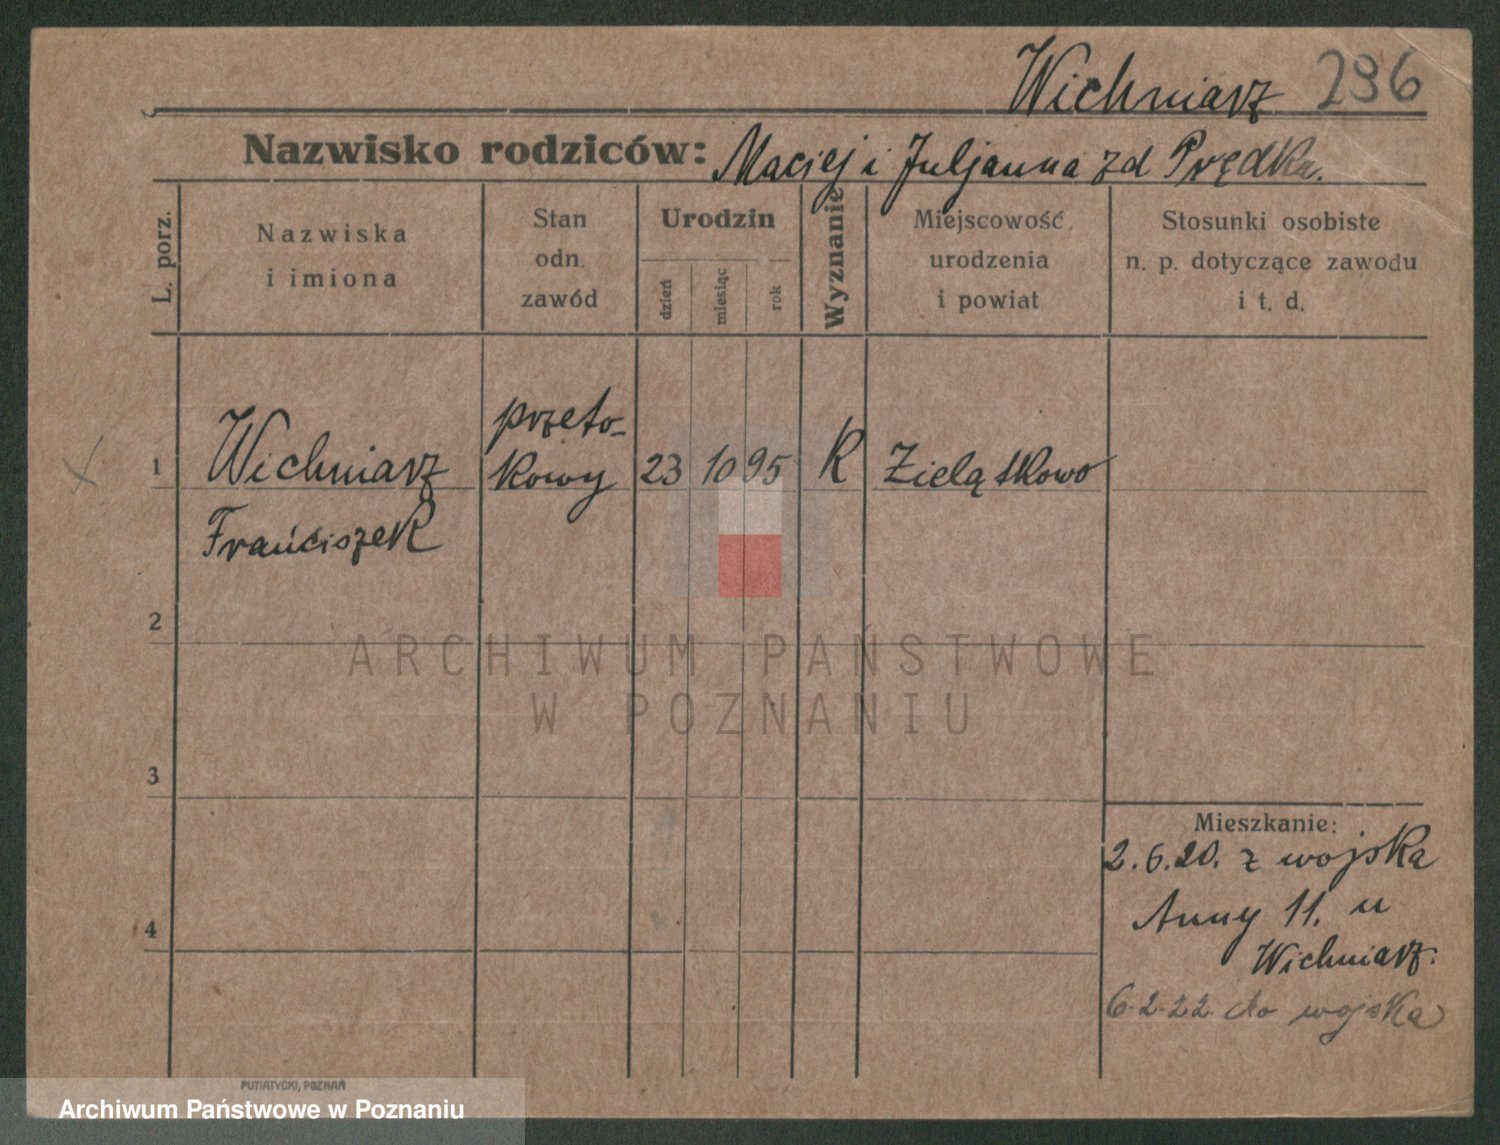 Wichniarz 296
Nazwisko rodziców: Maciej i Juljanna zd Prędka.
L. porz.
Nazwiska
i imiona
Stan
odn.
zawód
Urodzin
dzień
miesiąc
rok
Wyznanie
Miejscowość
urodzenia
i powiat
Stosunki osobiste
n. p. dotyczące zawodu
i t. d.
1
Wichniarz
Franciszek
przeto-
kowy
23 10 95
K
Zielątkowo
2
3
4
Mieszkanie:
2.6.20. z wojska
Anny 11. u
Wichniarz.
6.2.22. do wojska
ARCHIWUM PAŃSTWOWE
W POZNANIU
PUTIATYCKI, POZNAŃ
Archiwum Państwowe w Poznaniu